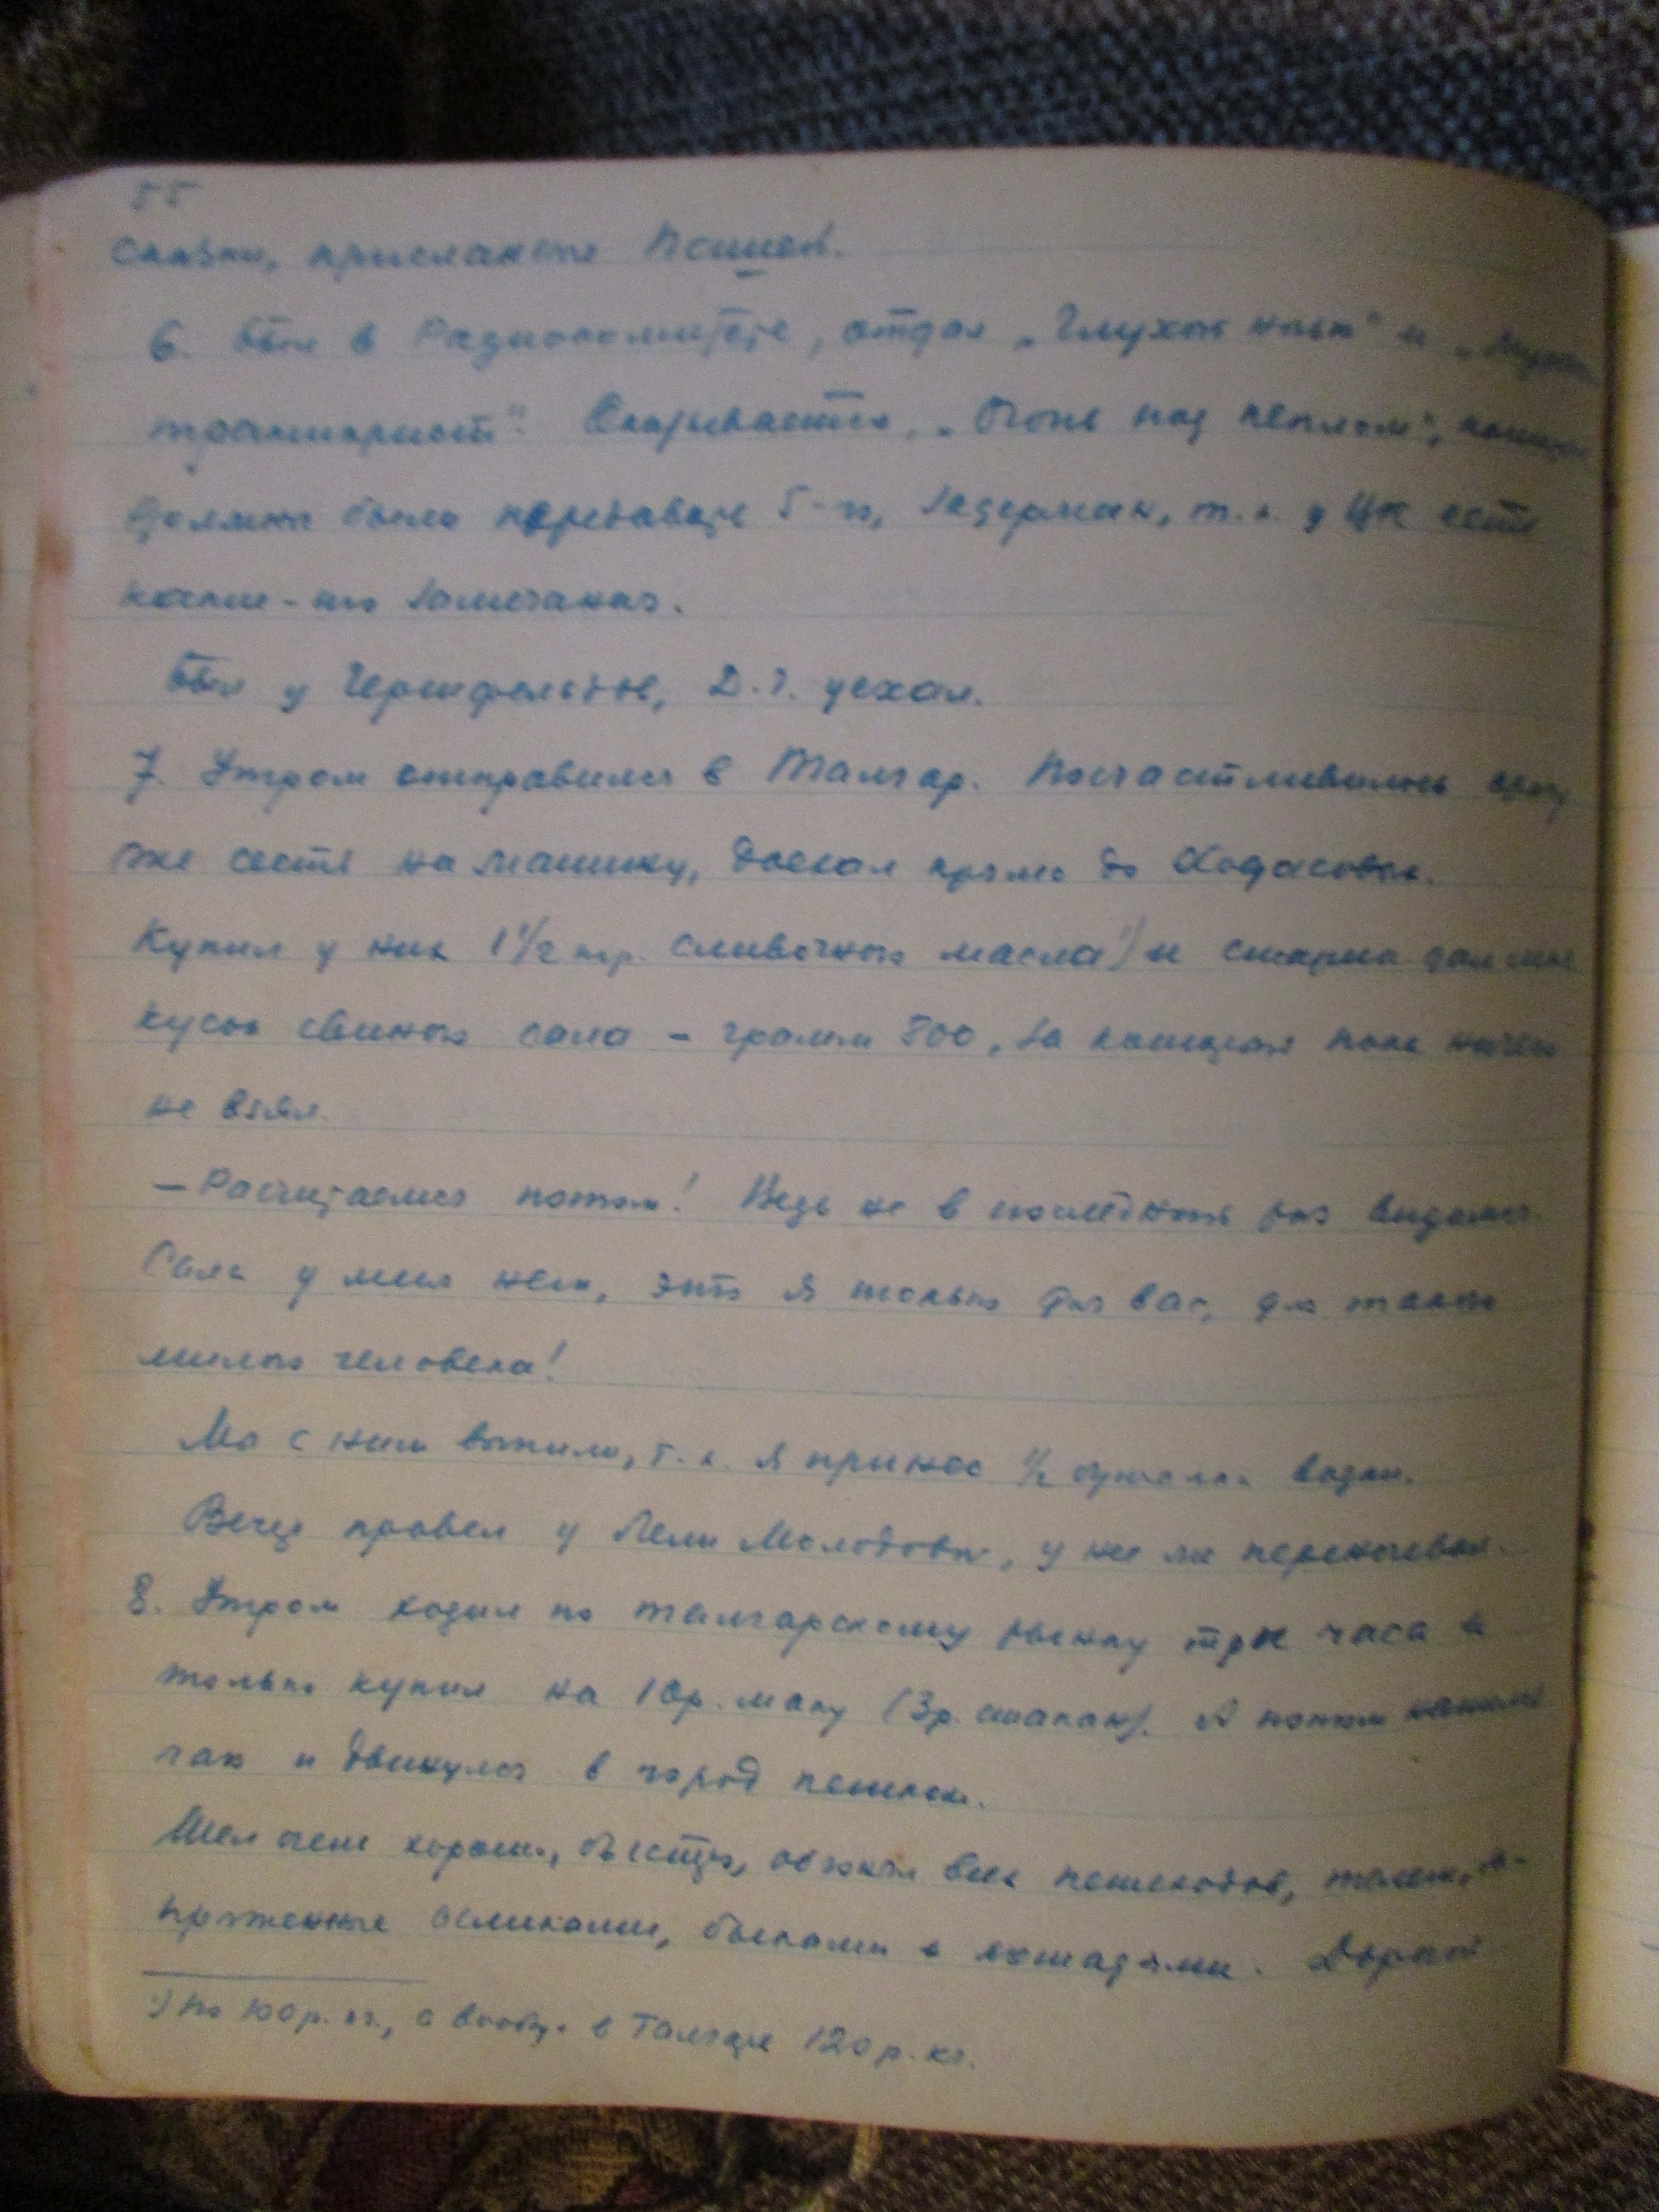 55
связи, присланные
6. Был в Радиокомитете, отдал „Глухой ночью" и
тракторист". Оказывается, „Огонь под пеплом",
должны были передавать 5-го, задержан, т.к. у ЦК есть
какие-то замечания.
Был у Гершфельдов, Д.Г. уехал.
7. Утром отправился в Талгар. Посчастливилось сразу
же сесть на машину, доехал прямо до
Купил у них 1 1/2 кгр. сливочного масла¹) и старик дал мне
кусок свиного сала – грамм 800, за которое пока ничего
не взял.
– Расчитаемся потом! Ведь не в последний раз видимся.
Сала у меня нет, это я только для вас, для такого
милого человека!
Мы с ним выпили, т.к. я принес 1/2 бутылки водки.
Вечер провел у Лели Молодовой, у нее же переночевал.
8. Утром ходил по талгарскому рынку три часа и
только купил на 10р. маку (3р. стакан). А потом
и двинулся в город пешком.
Шел очень хорошо, быстро, обгонял всех пешеходов,
пряженные осликами, быками и лошадями. Дорогой
¹) По 100р. кг., а вообще в Талгаре 120р. кг.